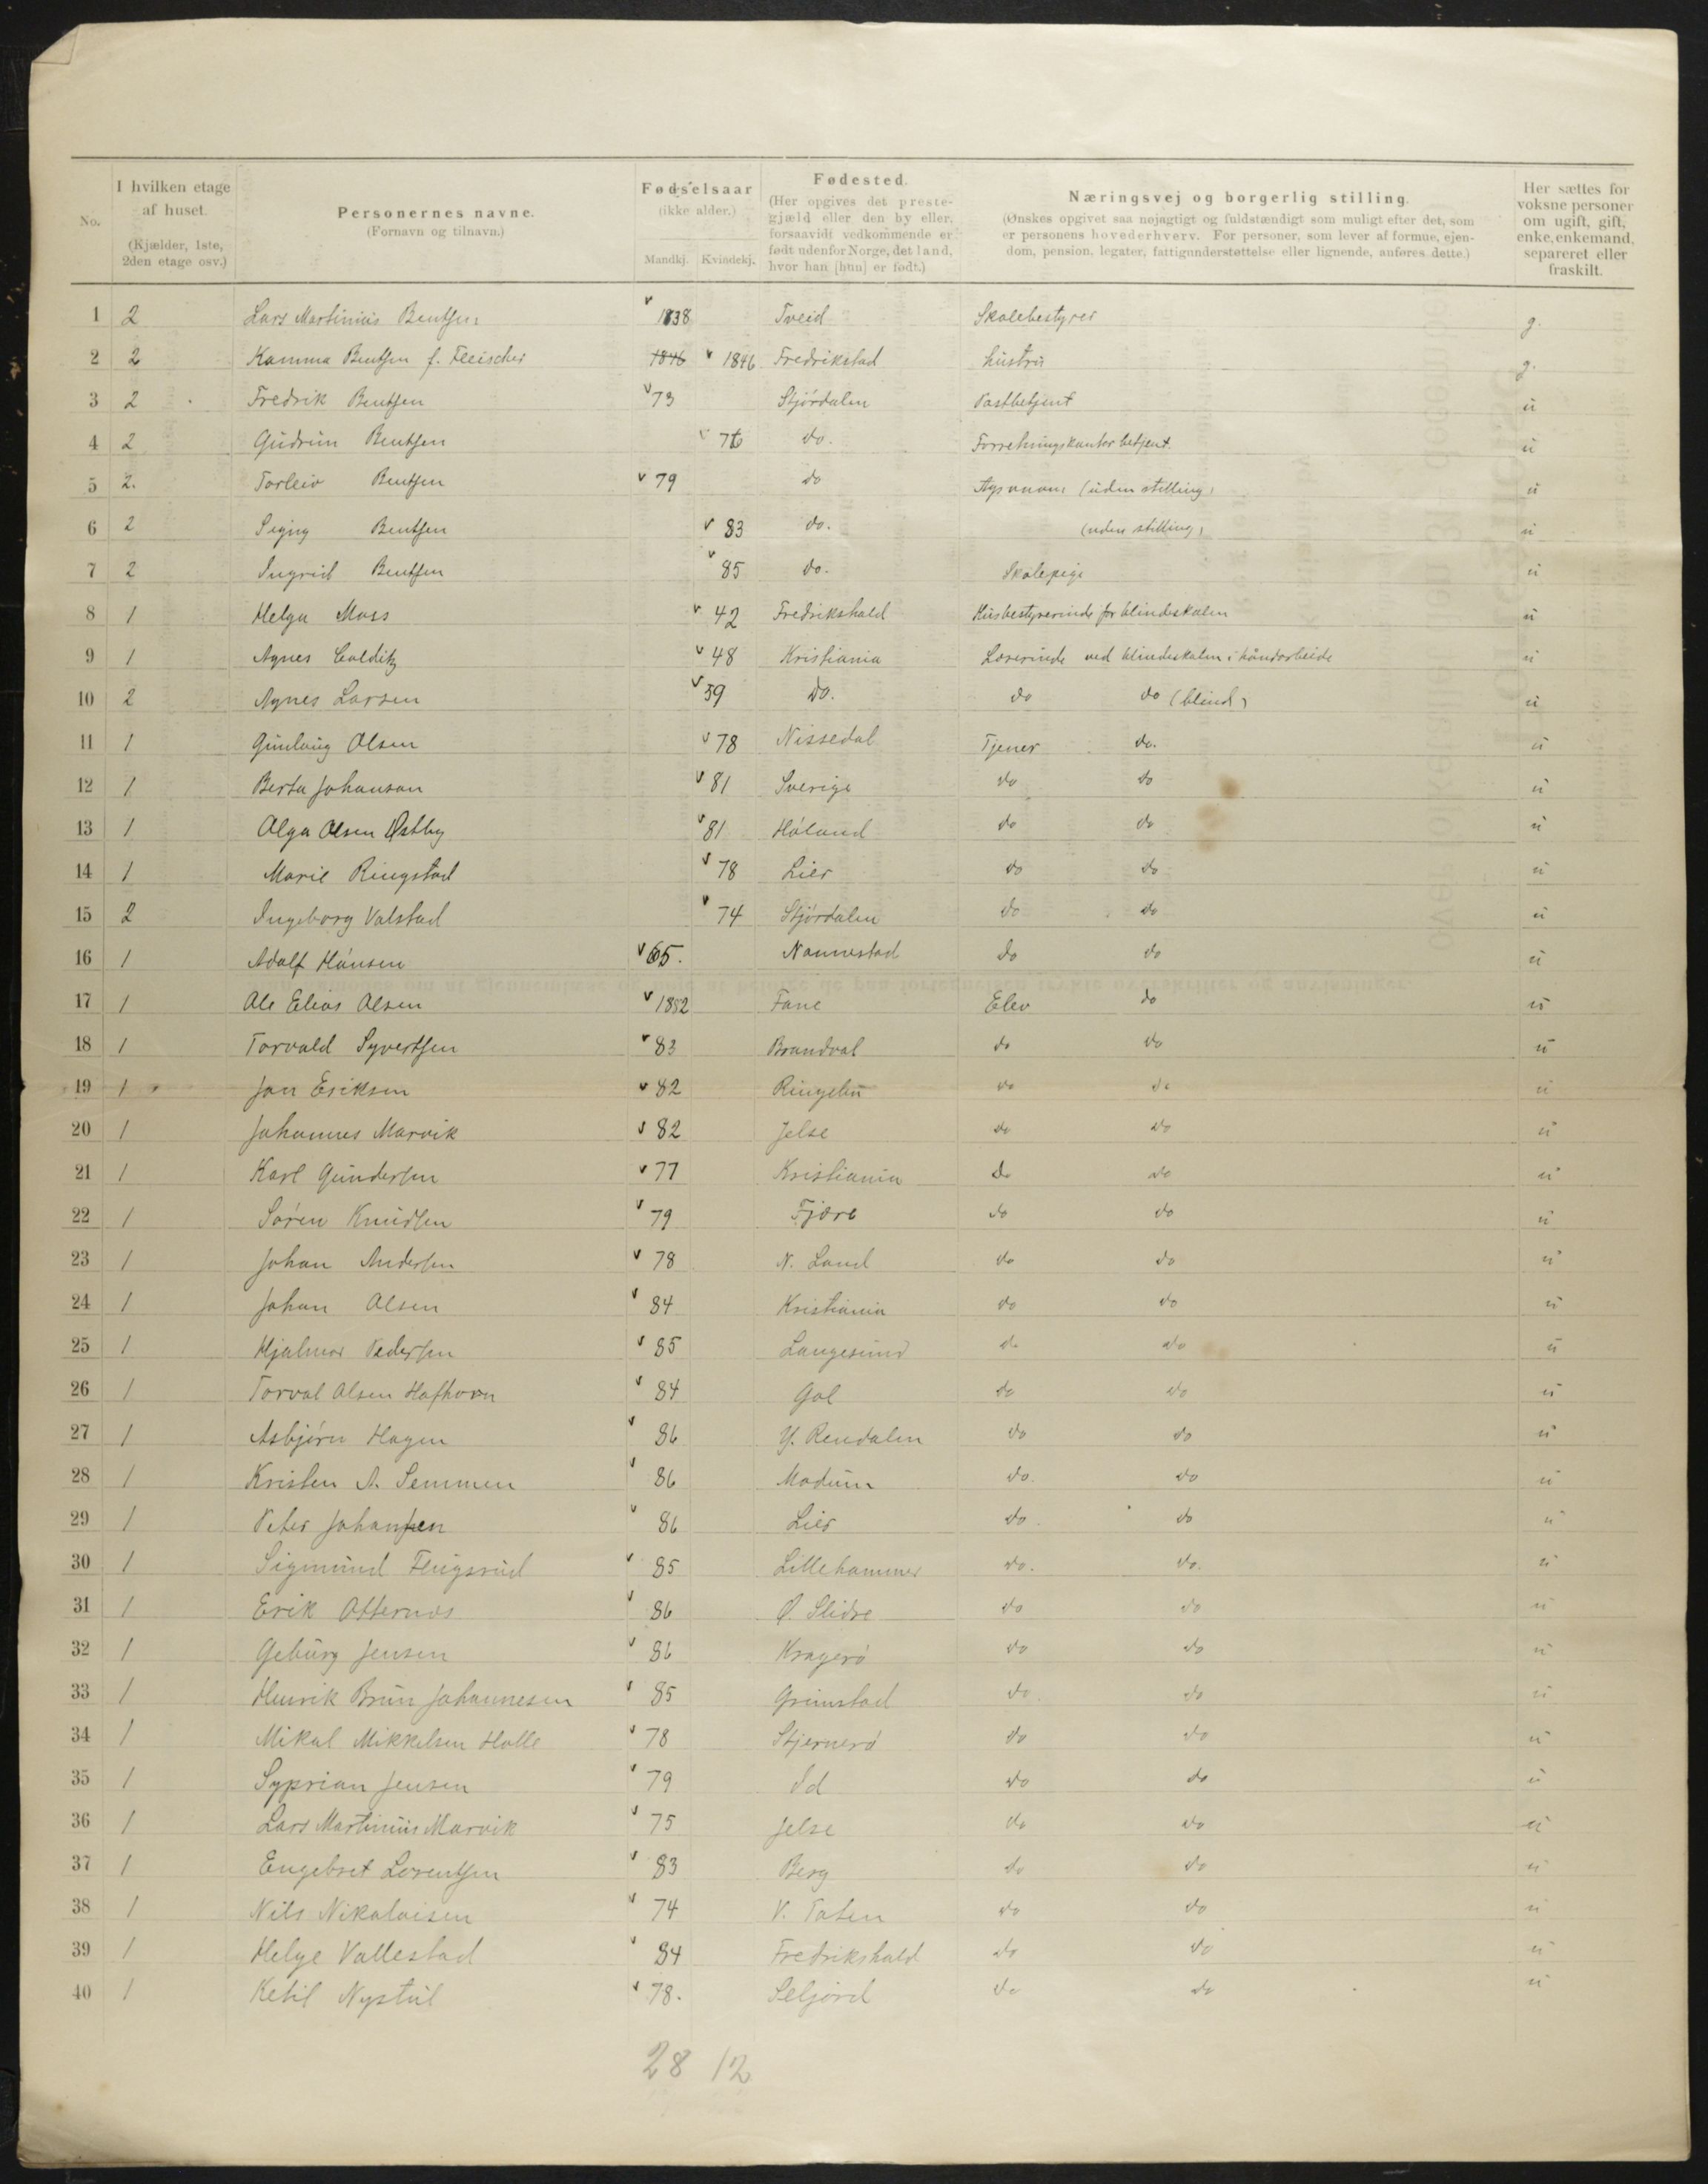 No.
I hvilken etage
af huset.
(Kjælder, 1ste,
2den etage osv.)
Personernes navne.
(Fornavn og tilnavn.)
Fødselsaar
(ikke alder.)
Mandkj. Kvindekj.
Fødested.
(Her opgives det preste-
gjæld eller den by eller,
forsaavidt vedkommende er
født udenfor Norge, det land,
hvor han [hun] er født.)
Næringsvej og borgerlig stilling.
(Ønskes opgivet saa nøjagtigt og fuldstændigt som muligt efter det, som
er personens hovederhverv. For personer, som lever af formue, ejen-
dom, pension, legater, fattigunderstøttelse eller lignende, anføres dette.)
Her sættes for
voksne personer
om ugift, gift,
enke, enkemand,
separeret eller
fraskilt.
1 2 Lars Martinius Bentsen v 1838 Tveid Skolebestyrer g.
2 2 Kamma Bentsen f. Fleischer 1846 v 1846 Fredrikstad hustru g.
3 2 Fredrik Bentsen v 73 Stjørdalen Postbetjent u
4 2 Gudrun Bentsen v 76 do. Forretningskontor betjent. u
5 2. Torleiv Bentsen v 79 do Agronom (uden stilling) u
6 2 Signy Bentsen v 83 do. (uden stilling) u
7 2 Ingrid Bentsen v 85 do. Skolepige u
8 1 Helga Moss v 42 Fredrikshald Husbestyrerinde for blindeskolen u
9 1 Agnes Colditz v 48 Kristiania Lærerinde ved blindeskolen i håndarbeide u
10 2 Agnes Larsen v 59 do. do do (blind) u
11 1 Gunlaug Olsen v 78 Nissedal Tjener do. u
12 1 Berta Johanson v 81 Sverige do do u
13 1 Olga Olsen Østby v 81 Høland do do u
14 1 Marie Ringstad v 78 Lier do do u
15 2 Ingeborg Valstad v 74 Stjørdalen do do u
16 1 Adolf Hansen v 65. Nannestad do do u
17 1 Ole Elias Olsen v 1882 Fane Elev do u
18 1 Torvald Syvertsen v 83 Brandval do do u
19 1 Jon Eriksen v 82 Ringebu do do u
20 1 Johannes Marvik v 82 Jelse do do u
21 1 Karl Gundersen v 77 Kristiania do do u
22 1 Søren Knudsen v 79 Fjære do do u
23 1 Johan Andersen v 78 N. Land do do u
24 1 Johan Olsen v 84 Kristiania do do u
25 1 Hjalmar Pedersen v 85 Langesund do do u
26 1 Torval Olsen Hafhorn v 84 Gol do do u
27 1 Asbjørn Hagen v 86 Y. Rendalen do do u
28 1 Kristen A. Semmen v 86 Modum do. do u
29 1 Peter Johansen v 86 Lier do. do u
30 1 Sigmund Flugsrud v 85 Lillehammer do. do. u
31 1 Erik Otternes v 86 Ø. Slidre do do u
32 1 Geburg Jensen v 86 Kragerø do do u
33 1 Henrik Brun Johannesen v 85 Grimstad do. do u
34 1 Mikal Mikkelsen Halle v 78 Stjernerø do do u
35 1 Syprian Jensen v 79 Id do do u
36 1 Lars Martinius Marvik v 75 Jelse do do u
37 1 Engebret Lorentsen v 83 Berg do do u
38 1 Nils Nikolaisen v 74 V. Toten do do u
39 1 Helge Vallestad v 84 Fredrikshald do do u
40 1 Ketil Nystul v 78. Seljord do do u
28 12